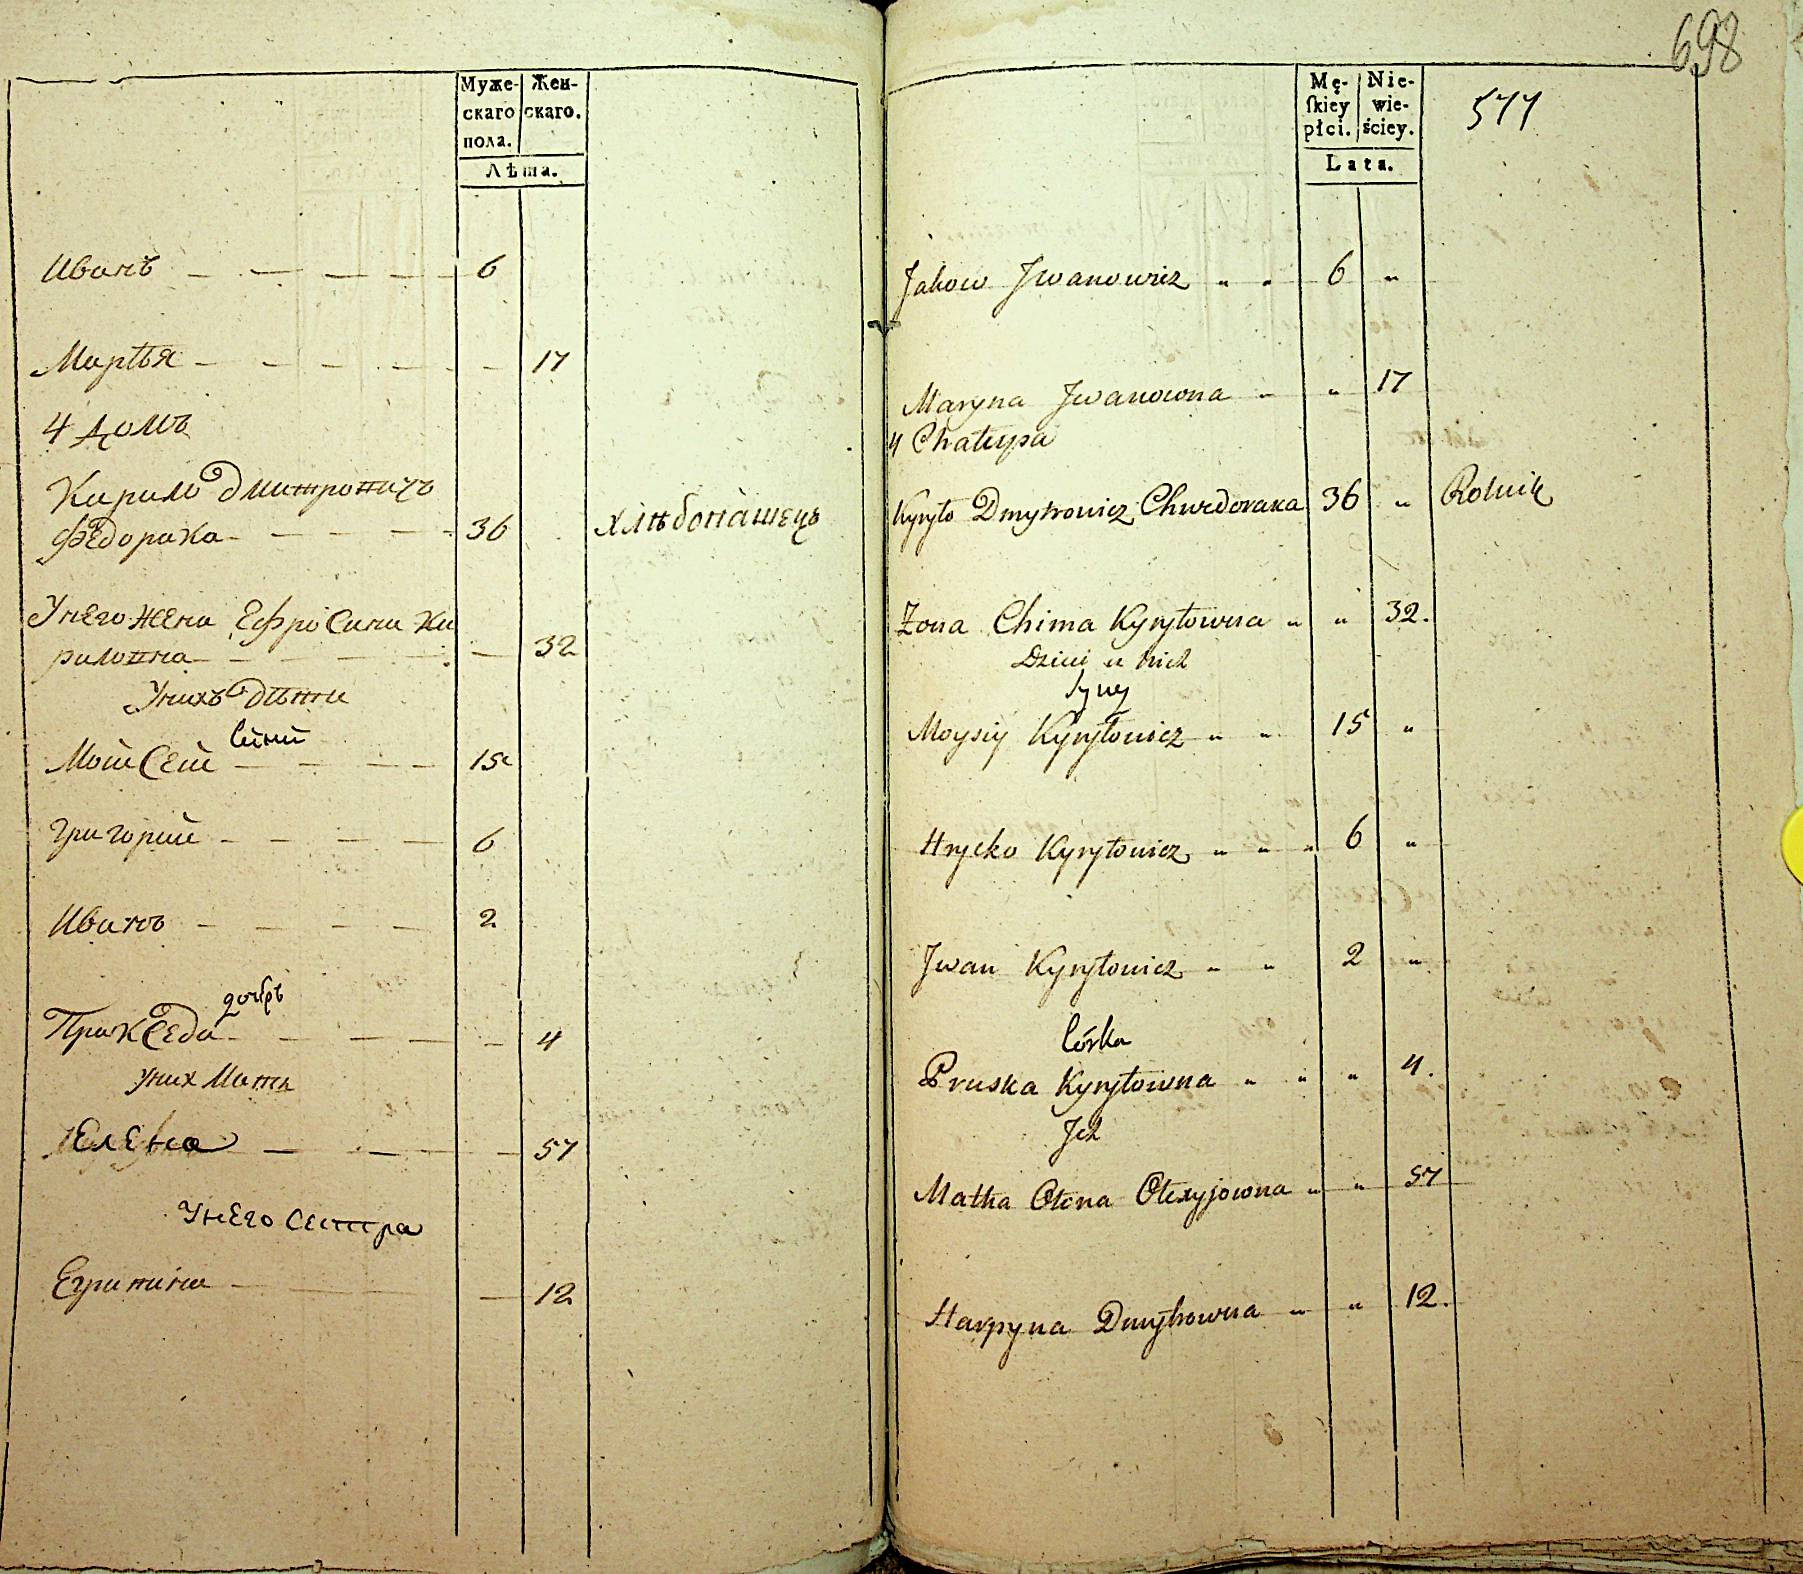 Муже-
скаго
пола.
Жен-
скаго.
Лѣта.
Иванъ 6
Марѣя 17
4 домъ
Кирило Дмитровичъ
Федорака 36 хлѣбопашецъ
У него жена Ефросина Ки
риловна 32
У нихъ дѣти
сины
Мойсей 15
Григорий 6
Иванъ 2
дочерь
Пракседа 4
У них мать
Елена 57
У него сестра
Егрипина 12
698
577
Mę-
ſkiey
płci.
Nie-
wie-
ściey.
Lata.
Jakow Jwanowicz " " 6 "
Maryna Jwanowna " " 17
4 Chałupa
Kyryło Dmytrowicz Chwedoraka 36 " Rolnik
Żona Chima Kyryłowna " " 32.
Dzieci u nich
Syny
Moysiy Kyryłowicz " " 15 "
Hrycko Kyryłowicz " " " 6 "
Jwan Kyryłowicz " " 2 "
Córka
Pruska Kyryłowna " " " 4.
Jch
Matka Ołena Ołexyjowna " " 57
Harpyna Dmytrowna " " 12.